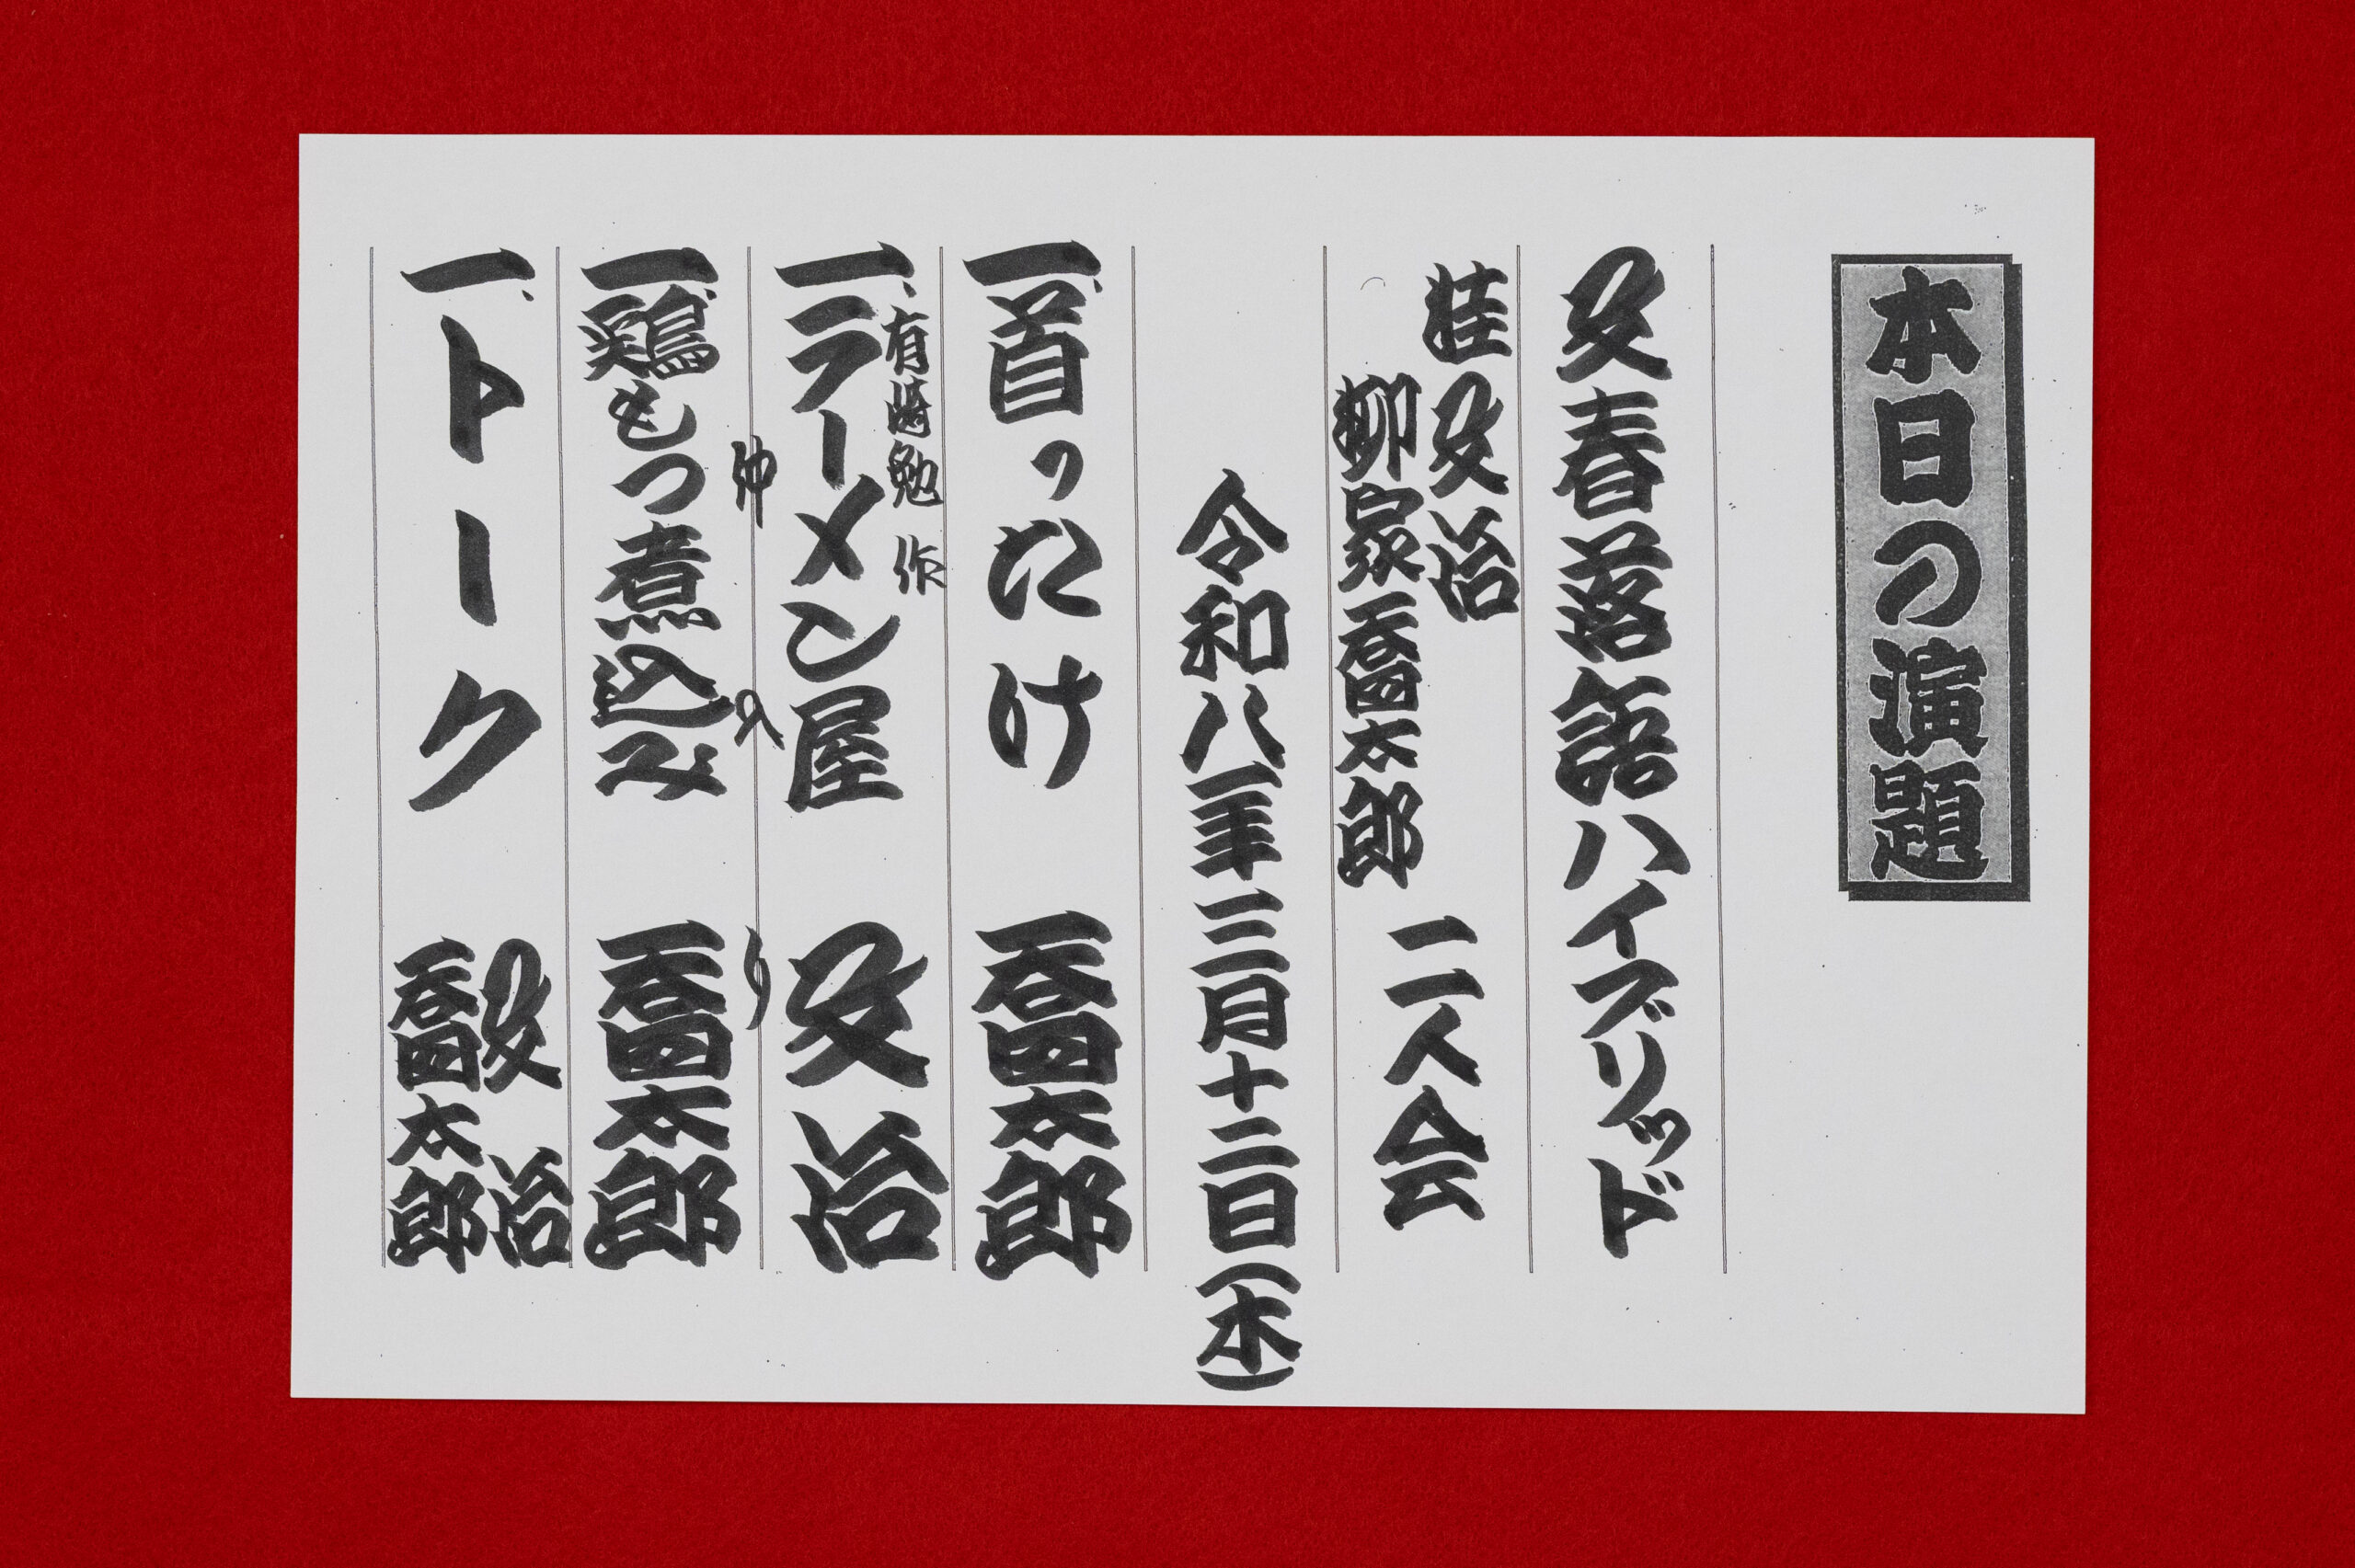 本日の演題
文春落語ハイブリッド
桂文治
柳家喬太郎
二人会
令和八年三月十二日(木)
一、首ったけ 喬太郎
有崎勉 作
一、ラーメン屋 文治
仲入り
一、鶏もつ煮込み 喬太郎
一、トーク
文治
喬太郎